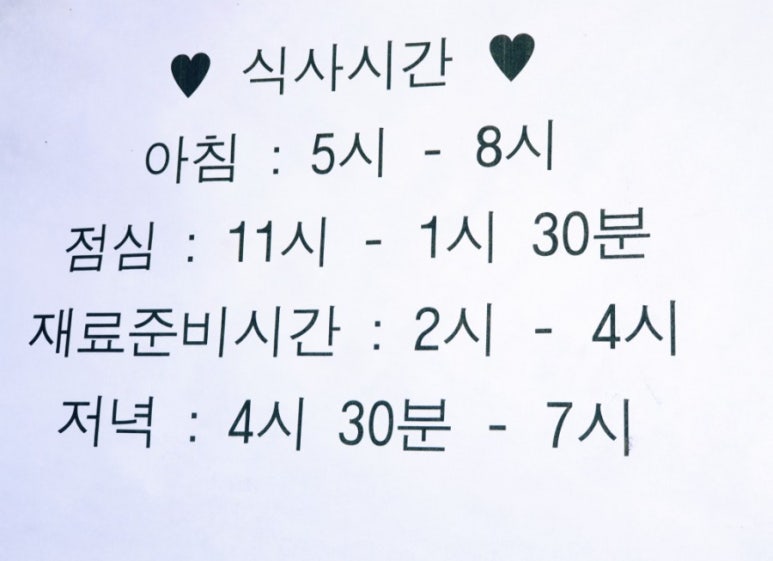 ♥ 식사시간 ♥
아침 : 5시 - 8시
점심 : 11시 - 1시 30분
재료준비시간 : 2시 - 4시
저녁 : 4시 30분 - 7시